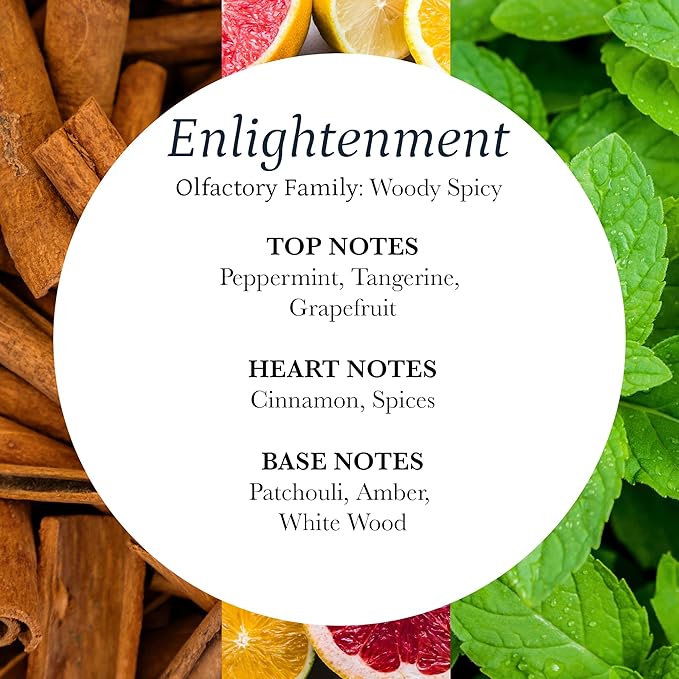 Enlightenment
Olfactory Family: Woody Spicy
TOP NOTES
Peppermint, Tangerine,
Grapefruit
HEART NOTES
Cinnamon, Spices
BASE NOTES
Patchouli, Amber,
White Wood